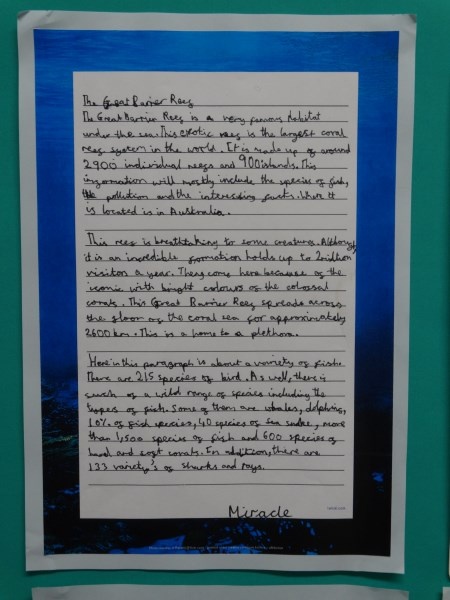 The Great Barrier Reef
The Great Barrier Reef is a very famous habitat
under the sea. This exotic reef is the largest coral
reef system in the world. It is made up of around
2900 individual reefs and 900 islands. This
information will mostly include the species of fish,
the pollution and the interesting facts. Where it
is located is in Australia.
This reef is breathtaking to some creatures. Although,
it is an incredible formation holds up to 2 million
visitors a year. They come here because of the
iconic with bright colours of the colossal
corals. This Great Barrier Reef spreads across
the floor of the coral sea for approximately
2600 km. This is a home to a plethora.
Here in this paragraph is about a variety of fish.
There are 215 species of bird. As well, there is
such of a wild range of species including the
types of fish. Some of them are whales, dolphins,
10% of fish species, 40 species of sea snake, more
than 1,500 species of fish and 600 species of
hard and soft corals. In addition, there are
133 variety's of sharks and rays.
Miracle